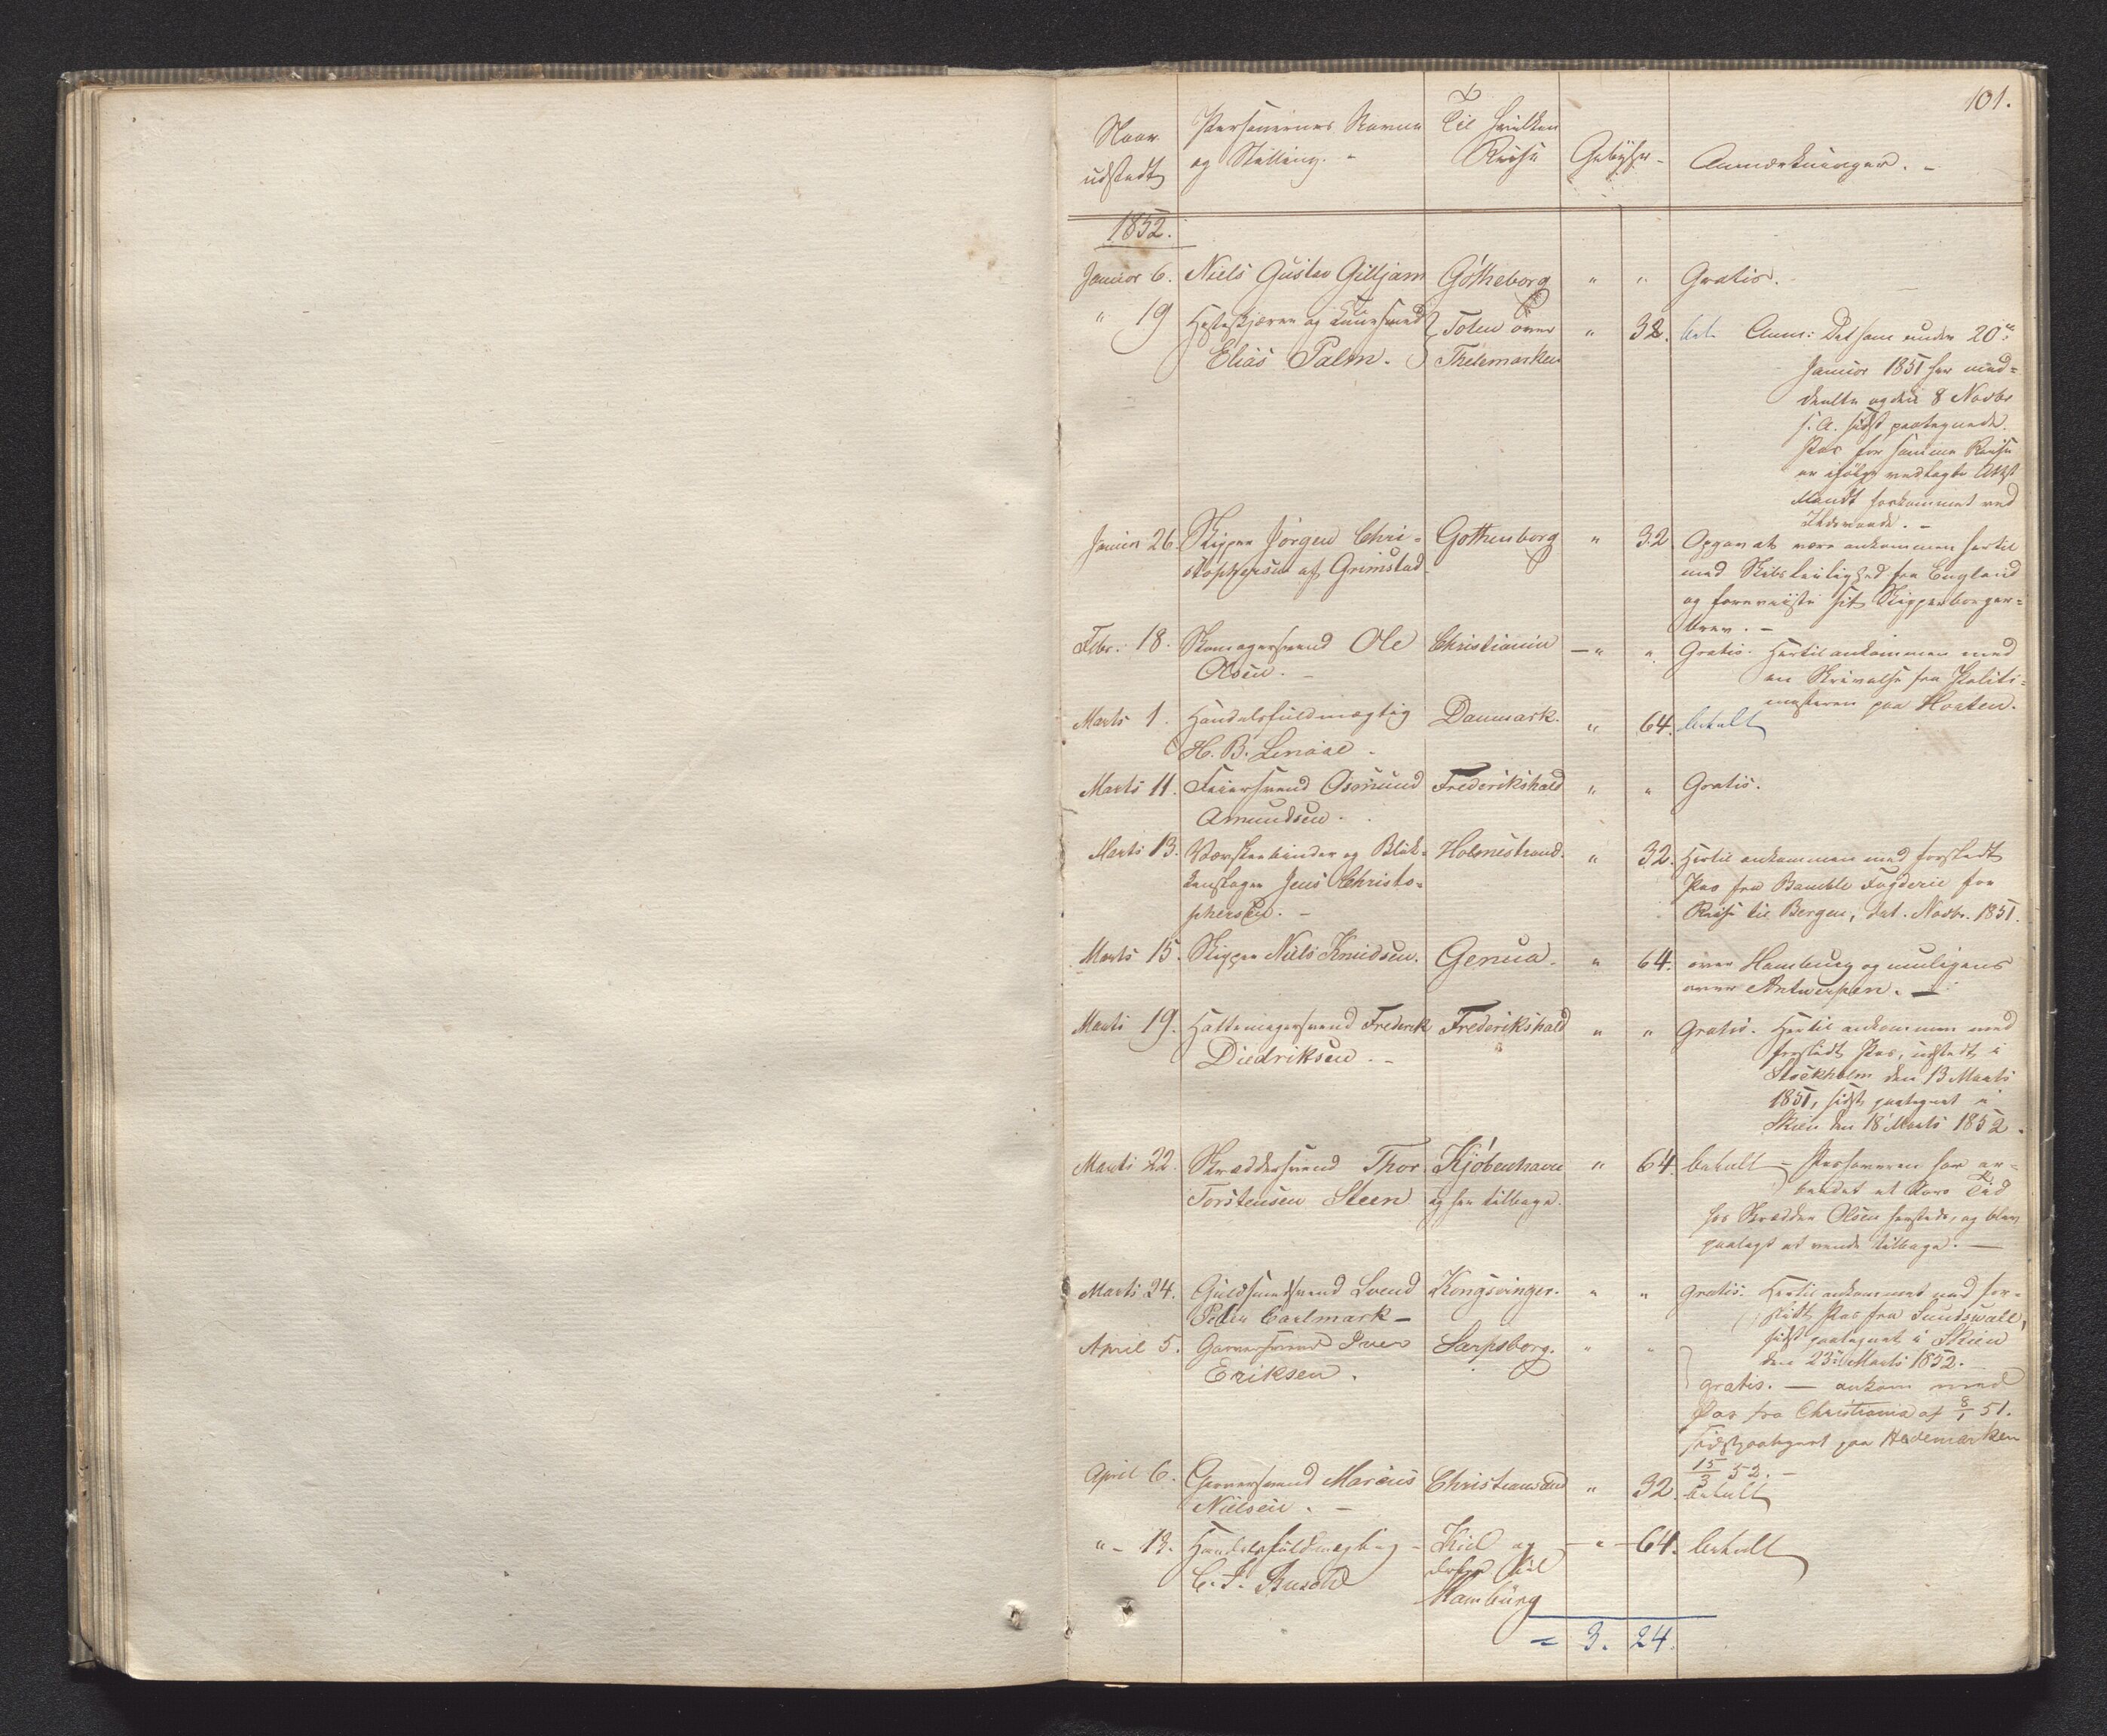 101.
Naar udstedt
Personernes Navne og Stilling. -
Til hvilken Reise
Gebyhr -
Anmærkninger. -
1852.
Januar 6. Niels Gustav Gilljam Gøtheborg " " Gratis.
" 19 Hesteskjærer og
Elias Palm. - Toten over Thelemarken " 32. bet. Anm: Det som under 20de
Januar 1851 her med-
deelte og den 8 Novbr
s. A. sidst paategnede
Pas for samme Reise
er ifølge vedlagte Attest
forkommet ved
Ildsvaade. -
Januar 26. Skipper Jørgen Chri-
stophersen af Grimstad Gothenborg " 32. Opgav at være ankommen hertil
med Skibsleilighed fra England
og foreviiste sit Skipperborger-
brev. -
Febr. 18. Skomagersvend Ole
Olsen. - Christiania - " " Gratis. Hertil ankommen med
en Skrivelse fra Politi-
mesteren paa Horten.
Marts 1. Handelsfuldmægtig
H. B. Linaae. Danmark. " 64. betalt
Marts 11. Feiersvend Osmund
Amundsen. Frederikshald " " Gratis.
Marts 13. Børstenbinder og Blik-
kenslager Jens Christo-
phersen. - Holmestrand. " 32. Hertil ankommen med forslidt
Pas fra Bamble Fogderie for
Reise til Bergen, dat. Novbr. 1851.
Marts 15. Skipper Niels Knudsen. Genua. " 64. over Hamburg og muligens
over Antwerpen. -
Marts 19. Hattemagersvend Frederik
Diedriksen. - Frederikshald " " Gratis. Hertil ankommen med
forslidt Pas, udstedt i
Stockholm den 13 Marts
1851, sidst paategnet i
Skien den 18 Marts 1852.
Marts 22. Skræddersvend Thor
Torstensen Steen Kjøbenhavn
og her tilbage. " 64. betalt - Personen har ar-
beidet et Aars Tid
hos Skrædder Olsen hersteds, og blev
paalagt at vende tilbage. -
Marts 24. Guldsmedsvend Svend
Peter Carlmark - Kongsvinger. " " gratis. Hertil ankommet med for-
slidt Pas fra Sundswall,
sidst paategnet i Skien
den 23de Marts 1852.
April 5. Garversvend Iver
Eriksen. Sarpsborg. " " gratis. - ankom med
Pas fra Christiania af 8/1 51.
sidst paategnet paa Hedemarken
15/3 52. -
April 6. Garversvend Marius
Nielsen. - Christiansand " 32. betalt
" - 13. Handelsfuldmægtig -
C. S. Busch Kiel og
derfra til
Hamburg - " - 64. betalt
3. 24.